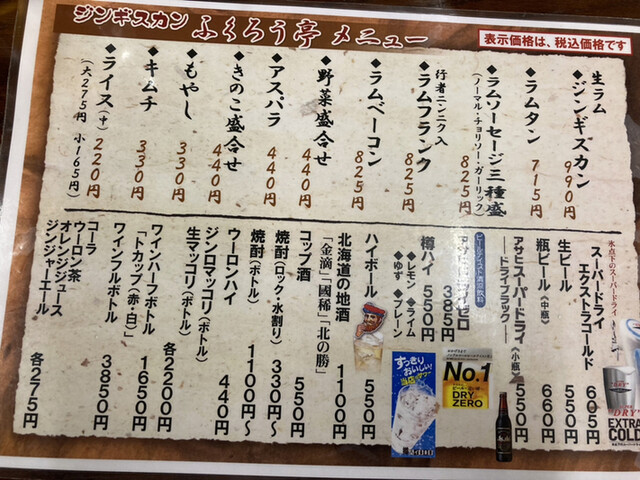 ジンギスカン ふくろう亭 メニュー
表示価格は、税込価格です
生ラム
◆ジンギスカン 990円
◆ラムタン 715円
◆ラムソーセージ三種盛 825円
(ノーマル・チョリソー・ガーリック)
行者ニンニク入
◆ラムフランク 825円
◆ラムベーコン 825円
◆野菜盛合せ 440円
◆アスパラ 440円
◆きのこ盛合せ 440円
◆もやし 330円
◆キムチ 330円
◆ライス(中) 220円
(大275円 小165円)
氷点下のスーパードライ
スーパードライ
エクストラコールド 605円
生ビール 550円
瓶ビール(中瓶) 660円
アサヒスーパードライ(小瓶) 550円
―ドライブラック―
ビールテイスト清涼飲料
アサヒドライゼロ 385円
樽ハイ 550円
◆レモン ◆ライム
◆ゆず ◆プレーン
ハイボール 550円
北海道の地酒 1100円
「金滴」「國稀」「北の勝」
コップ酒 550円
焼酎(ロック・水割り) 330円～
焼酎(ボトル) 1100円～
ウーロンハイ 440円
ジンロマッコリ(ボトル)
生マッコリ(ボトル) 各2200円
ワインハーフボトル 1650円
「トカップ(赤・白)」
ワインフルボトル 3850円
コーラ
ウーロン茶
オレンジジュース
ジンジャーエール 各275円
すっきり
おいしい!
No.1
DRY
ZERO
DRY
EXTRA
COLD